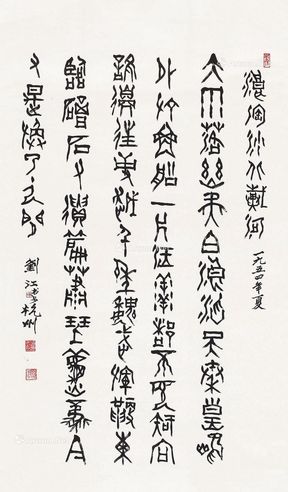 浪淘沙北戴河
一九五四年夏
大雨落幽燕白浪滔天秦皇島
外打魚船一片汪洋都不見知向
誰邊往事越千年魏武揮鞭東
臨碣石有遺篇蕭瑟秋風今
又是換了人間
劉江書於杭州